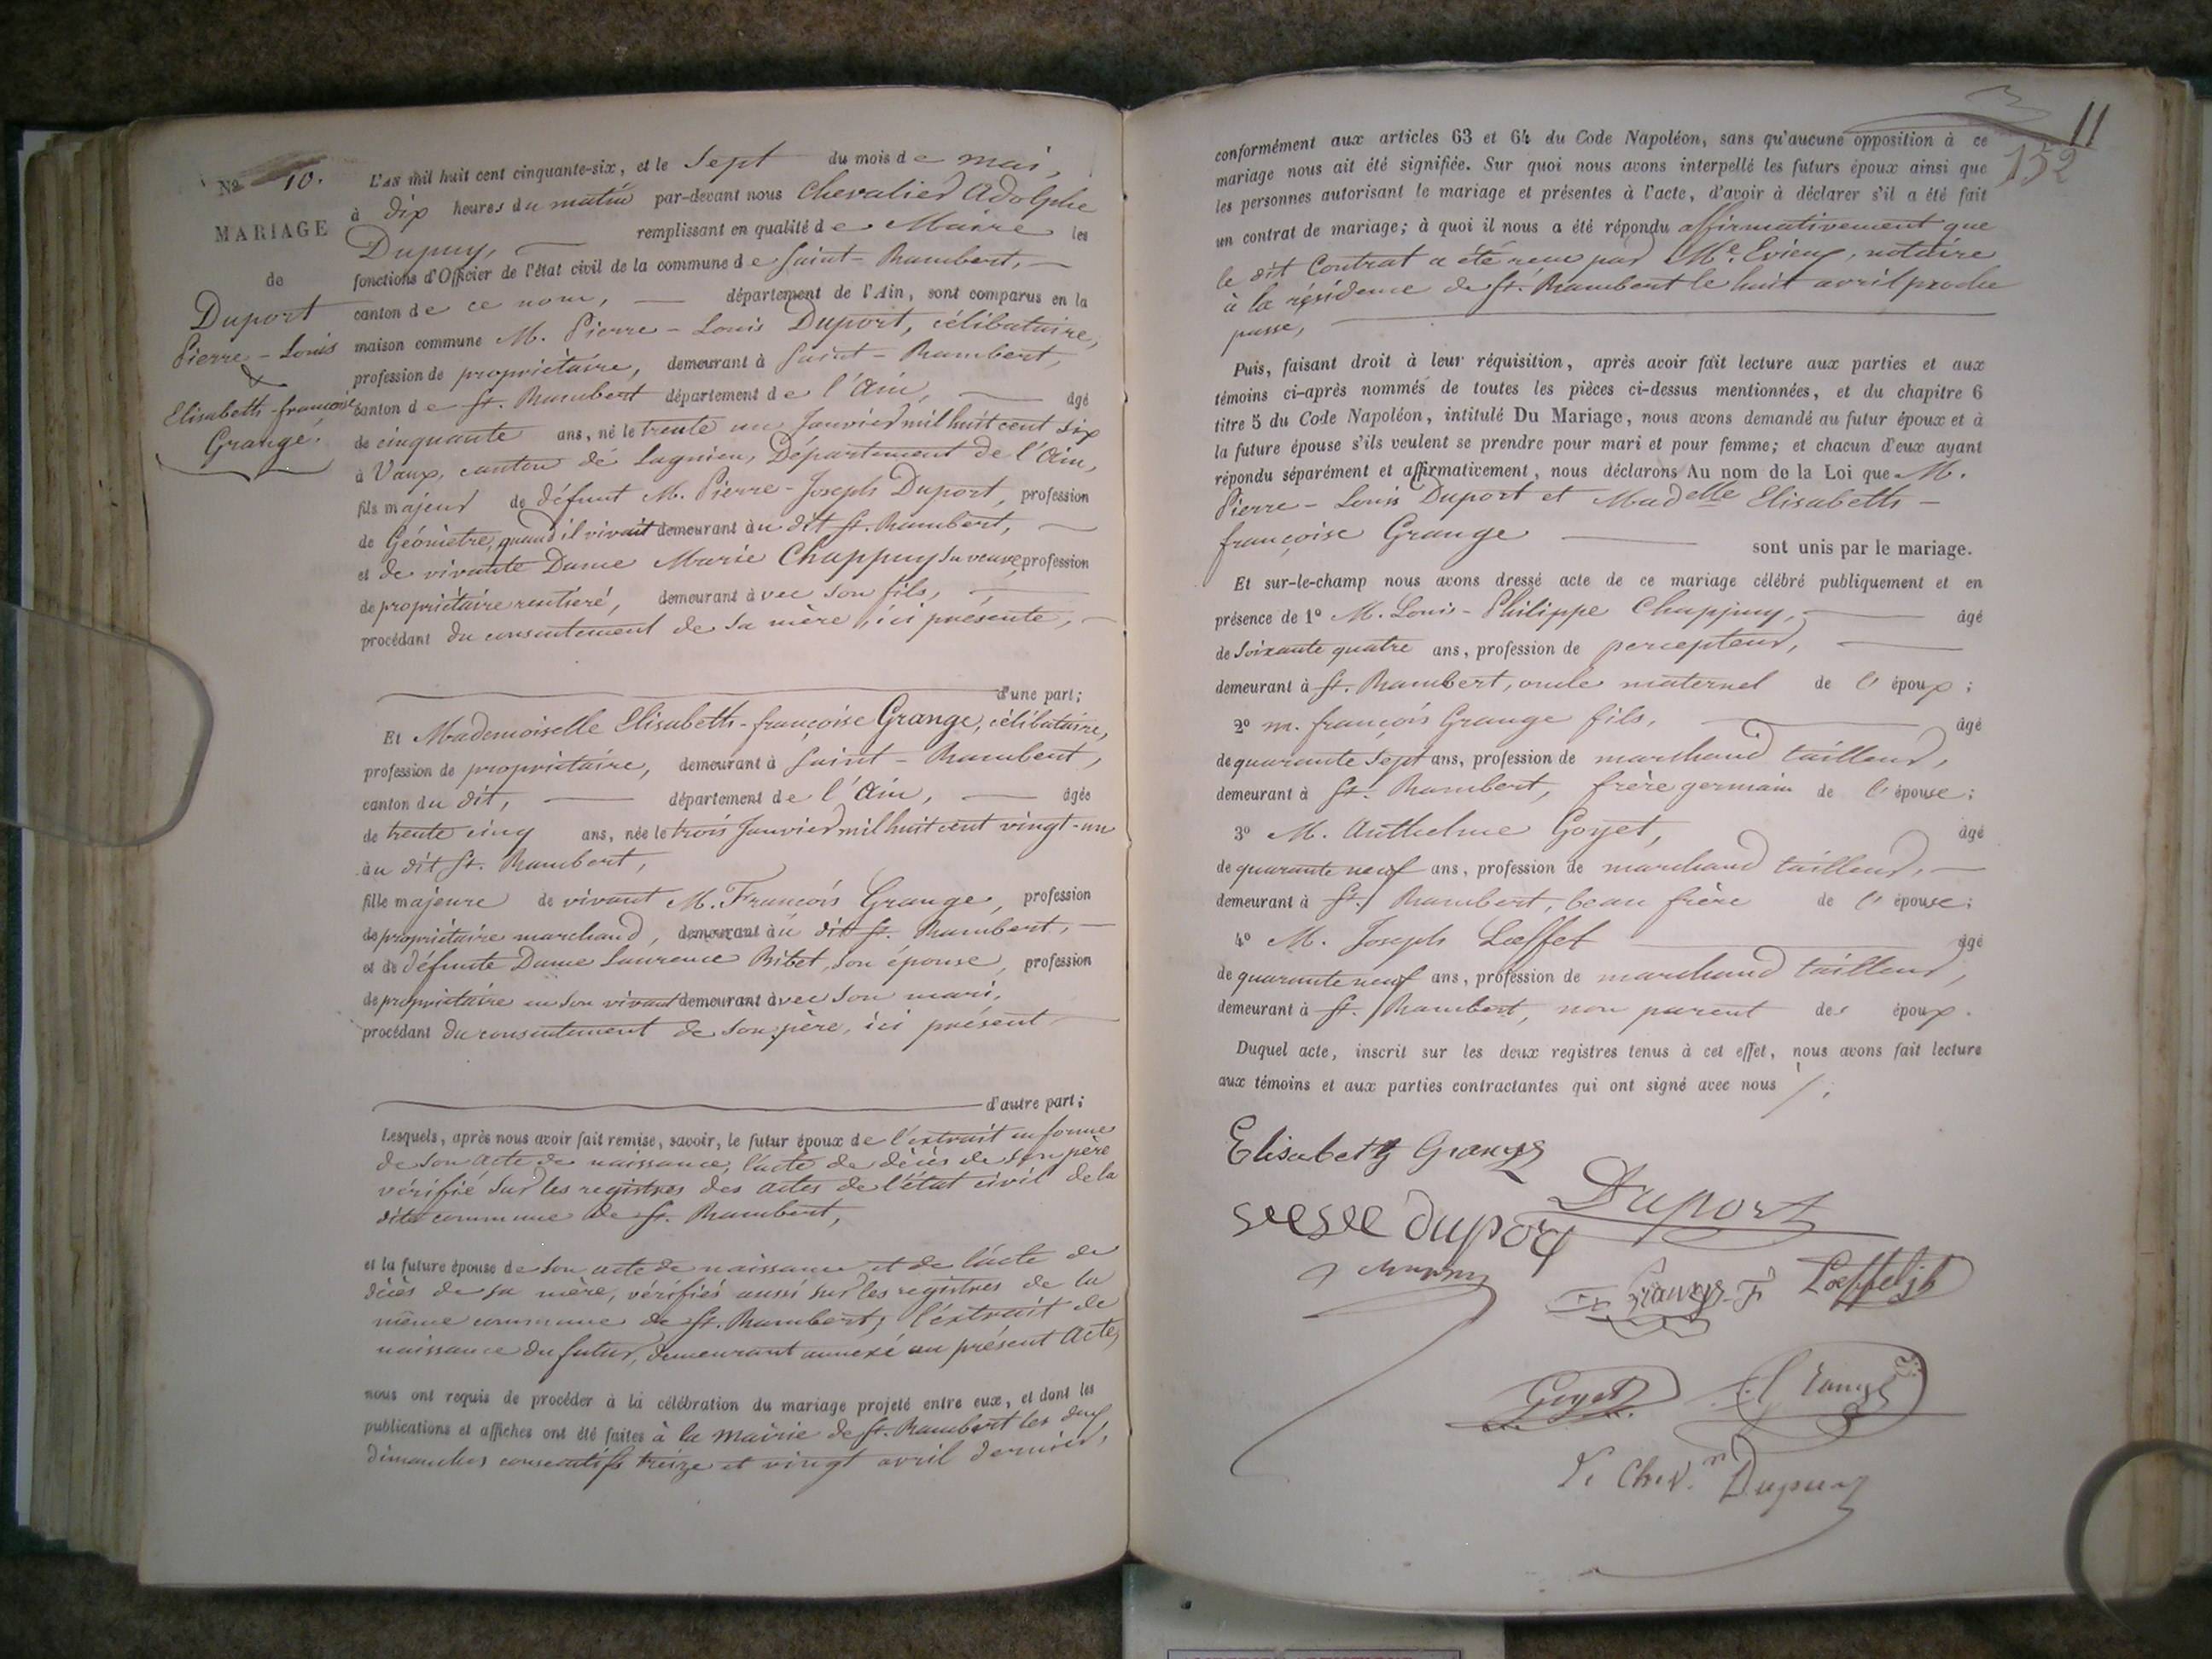 No 10.
MARIAGE
de
Duport
Pierre-Louis
&
Elisabeth-françoise
Grange.
L'AN mil huit cent cinquante-six, et le Sept du mois de mai,
à dix heures du matin par-devant nous Chevalier Adolphe
Dupuy, remplissant en qualité de Maire les
fonctions d'Officier de l'état civil de la commune de Saint-Rambert,
canton de ce nom, département de l'Ain, sont comparus en la
maison commune M. Pierre-Louis Duport, célibataire,
profession de propriétaire, demeurant à Saint-Rambert,
canton de St. Rambert département de l'Ain, âgé
de cinquante ans, né le trente un Janvier mil huit cent six
à Vaux, canton de Lagnieu, Département de l'Ain,
fils majeur de défunt M. Pierre-Joseph Duport, profession
de Géomètre, quand il vivait demeurant au dit St. Rambert,
et de vivante Dame Marie Chappuy sa veuve, profession
de propriétaire rentière, demeurant avec son fils,
procédant du consentement de sa mère, ici présente,
d'une part;
Et Mademoiselle Elisabeth-françoise Grange, célibataire,
profession de propriétaire, demeurant à Saint-Rambert,
canton du dit, département de l'Ain, âgée
de trente cinq ans, née le trois Janvier mil huit cent vingt-un
au dit St. Rambert,
fille majeure de vivant M. François Grange, profession
de propriétaire marchand, demeurant au dit St. Rambert,
et de défunte Dame Laurence Bibet, son épouse, profession
de propriétaire en son vivant demeurant avec son mari,
procédant du consentement de son père, ici présent
d'autre part;
Lesquels, après nous avoir fait remise, savoir, le futur époux de l'extrait en forme
de son acte de naissance, l'acte de décès de son père
vérifié sur les registres des actes de l'état civil de la
dite commune de St. Rambert,
et la future épouse de son acte de naissance et de l'acte de
décès de sa mère, vérifiés aussi sur les registres de la
même commune de St. Rambert; l'extrait de
naissance du futur, demeurant annexé au présent acte,
nous ont requis de procéder à la célébration du mariage projeté entre eux, et dont les
publications et affiches ont été faites à la mairie de St. Rambert les deux
dimanches consécutifs treize et vingt avril dernier,
11
152
conformément aux articles 63 et 64 du Code Napoléon, sans qu'aucune opposition à ce
mariage nous ait été signifiée. Sur quoi nous avons interpellé les futurs époux ainsi que
les personnes autorisant le mariage et présentes à l'acte, d'avoir à déclarer s'il a été fait
un contrat de mariage; à quoi il nous a été répondu affirmativement que
le dit Contrat a été reçu par Me. notaire
à la résidence de St. Rambert le huit avril proche
passe,
Puis, faisant droit à leur réquisition, après avoir fait lecture aux parties et aux
témoins ci-après nommés de toutes les pièces ci-dessus mentionnées, et du chapitre 6
titre 5 du Code Napoléon, intitulé Du Mariage, nous avons demandé au futur époux et à
la future épouse s'ils veulent se prendre pour mari et pour femme; et chacun d'eux ayant
répondu séparément et affirmativement, nous déclarons Au nom de la Loi que M.
Pierre-Louis Duport et Madelle Elisabeth-
françoise Grange sont unis par le mariage.
Et sur-le-champ nous avons dressé acte de ce mariage célébré publiquement et en
présence de 1º M. Louis-Philippe Chappuy, âgé
de soixante quatre ans, profession de percepteur,
demeurant à St. Rambert, oncle maternel de l'époux;
2º m. françois Grange fils, âgé
de quarante sept ans, profession de marchand tailleur,
demeurant à St. Rambert, frère germain de l'épouse;
3º M. Anthelme Goyet, âgé
de quarante neuf ans, profession de marchand tailleur,
demeurant à St. Rambert, beau frère de l'épouse;
4º M. Joseph Lœffel âgé
de quarante neuf ans, profession de marchand tailleur,
demeurant à St. Rambert, non parent des époux.
Duquel acte, inscrit sur les deux registres tenus à cet effet, nous avons fait lecture
aux témoins et aux parties contractantes qui ont signé avec nous
Elisabeth Grange
Duport
duport
Grange Fs Lœffel jh
Goyet
Le Chev. Dupuy